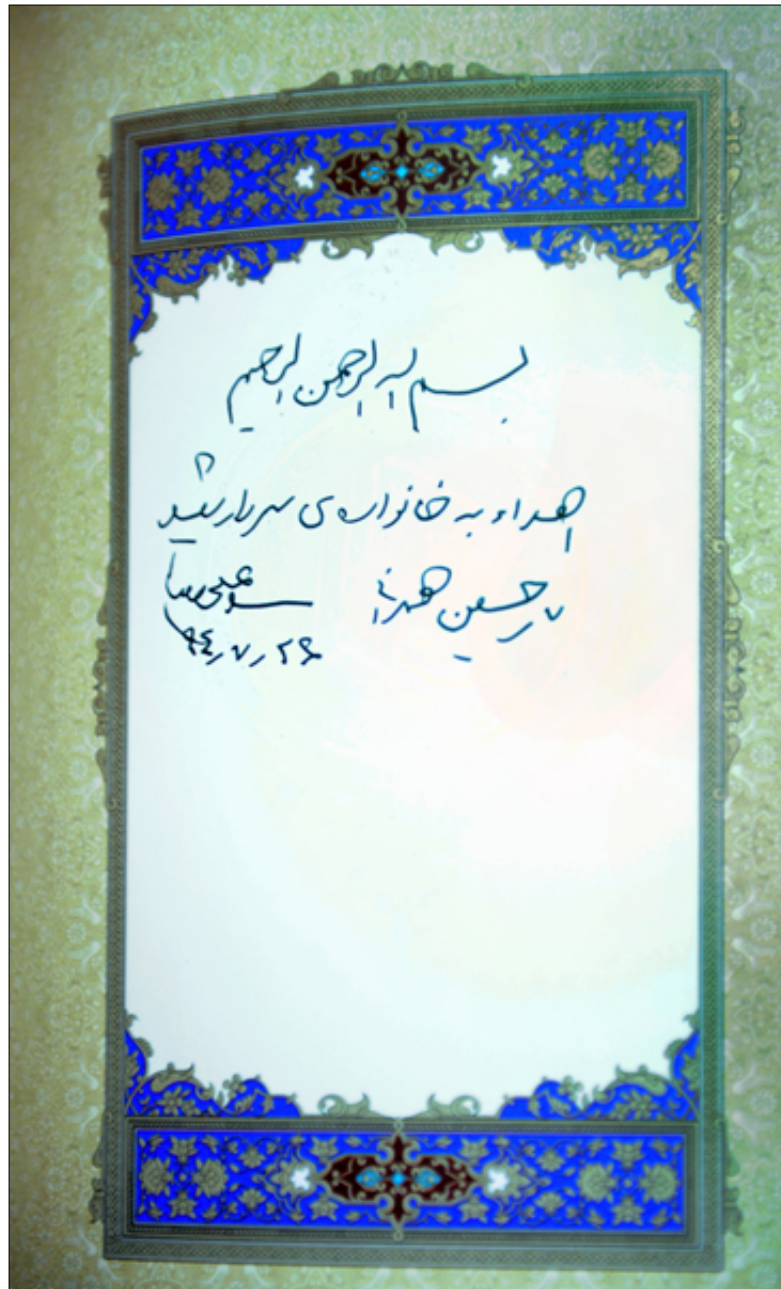 بسم الله الرحمن الرحیم
اهداء به خانواده‌ی سردار شهید
حسین همدانی
سید علی خامنه‌ای
۹۴٫۷٫۲۶